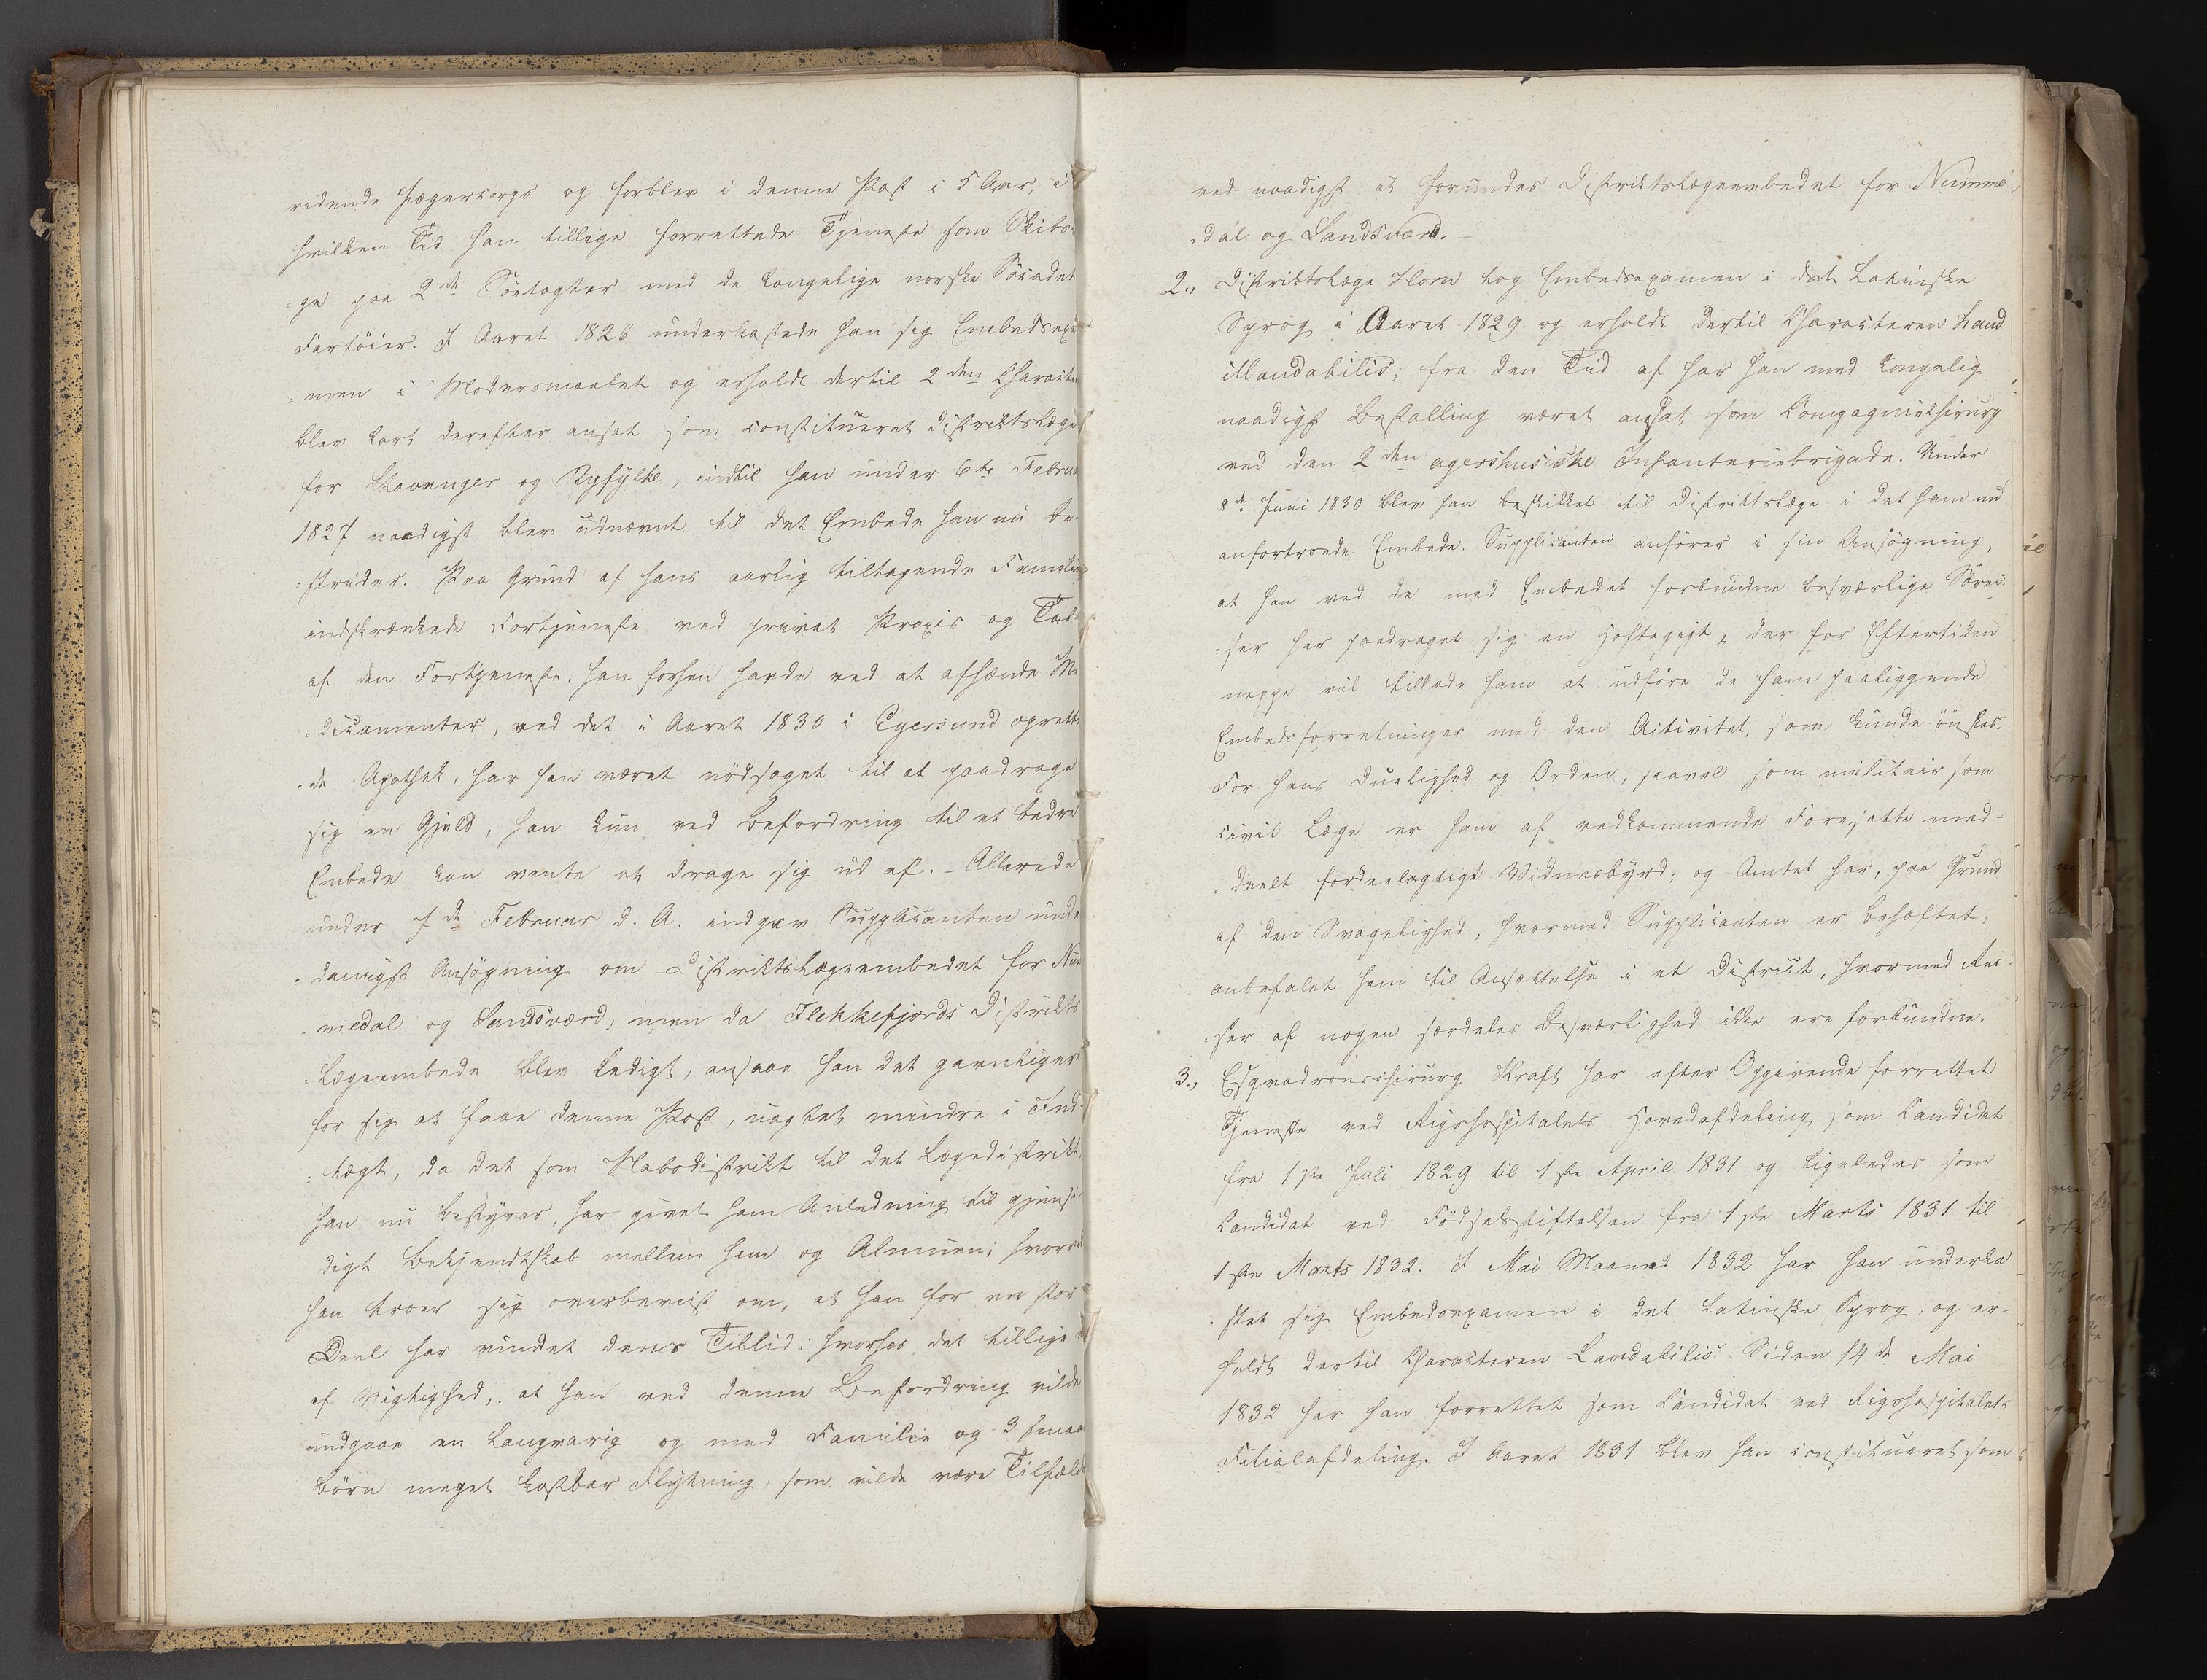 ridende Jægercorps og forblev i denne Post i 5 Aar, i
hvilken Tid han tillige forrettede Tjeneste som Skibs-
=ge paa 2de Söetogter med de kongelige norske Söcadet
Fartöier. I Aaret 1826 underkastede han sig Embedsexa
=men i Modersmaalet og erholdt dertil 2den Charakter
blev kort derefter ansat som constitueret Distriktslæge
for Stavanger og Ryfylke, indtil han under 6te Februar
1827 naadigst blev udnævnt til det Embede han nu be-
=strider. Paa Grund af hans aarlig tiltagende Familie
indskrænkede Fortjeneste ved privat Praxis og Tab
af den Fortjeneste, han forhen havde ved at afhænde Me
=dicamenter, ved det i Aaret 1830 i Egersund oprette
=de Apothek, har han været nödsaget til at paadrage
sig en Gjeld, han kun ved Befordring til et bedre
Embede kan vente at drage sig ud af. - Allerede
under 7de Februar d. A. indgav Supplicanten unde
=danigst Ansögning om Distriktslægeembedet for Num
=medal og Sandsværd, men da Flekkefjords Distrikts
=Lægeembede blev ledigt, ansaae han det gavnligere
for sig at faae denne Post, uagtet mindre i Ind-
=tægt, da det som Nabodistrikt til det Lægedistrikt,
han nu bestyrer, har givet ham Anledning til gjensi-
digt Bekjendtskab mellem ham og Almuen; hvorved
han troer sig overbeviist om, at han for en stor
Deel har vundet dens Tillid; hvorhos det tillige er
af Vigtighed, at han ved denne Befordring vilde
undgaae en langvarig og med Familie og 3 smaa
Börn meget kostbar Flytning, som vilde være Tilfældet
ved naadigst at forundes Distriktslægeembedet for Numme
=dal og Sandsværd. -
2., Distriktslæge Horn tog Embedsexamen i det Latinske
Sprog i Aaret 1829 og erholdt dertil Charakteren haud
illaudabilis; fra den Tid af har han med kongelig
naadigst Bestalling været ansat som Compagniechirurg
ved den 2den agershusiske Infanteriebrigade. Under
8de Juni 1830 blev han beskikket til Distriktslæge i det ham nu
anfortroede Embede. Supplicanten anförer i sin Ansögning,
at han ved de med Embedet forbundne besværlige Sörei-
=ser har paadraget sig en Hoftegigt, der for Eftertiden
neppe vil tillade ham at udföre de ham paaliggende
Embedsforretninger med den Activitet, som kunde önskes.
For hans Duelighed og Orden, saavel som militair som
civil Læge er ham af vedkommende Foresatte med-
=deelt fordeelagtigt Vidnesbyrd; og Amtet har, paa Grund
af den Svagelighed, hvormed Supplicanten er behæftet,
anbefalet ham til Ansættelse i et Distrikt, hvormed Rei-
=ser af nogen særdeles Besværlighed ikke ere forbundne.
3., Esqvadronschirurg Kraft har efter Opgivende forrettet
Tjeneste ved Rigshospitalets Hovedafdeling som Candidat
fra 1ste Juli 1829 til 1ste April 1831 og ligeledes som
Candidat ved Födselsstiftelsen fra 1ste Marts 1831 til
1ste Marts 1832. I Mai Maaned 1832 har han underka-
=stet sig Embedsexamen i det Latinske Sprog, og er-
holdt dertil Charakteren Laudabilis. Siden 14de Mai
1832 har han forrettet som Candidat ved Rigshospitalets
Filialafdeling. I Aaret 1831 blev han constitueret som